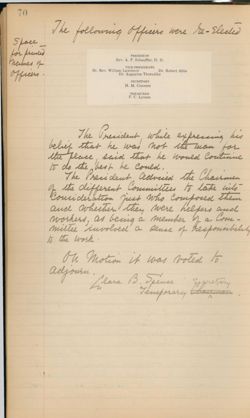 70
The following Officers were Re-Elected
Space
for printed
Names of
Officers.
PRESIDENT
Rev. A. F. Schauffler, D. D.
VICE-PRESIDENTS
Rt. Rev. William Lawrence Dr. Robert
Dr. Augustus Thorndike
SECRETARY
TREASURER
The President, while expressing his
belief that he was not the man for
the place, said that he would continue
to do the best he could.
The President, advised the Chairmen
of the different Committees to take into
Consideration just who composed them
and whether they were helpers and
workers, as being a member of a Com-
mittee involved a sense of responsibility
to the work.
On Motion it was voted to
adjourn.
Clara B. Spence Secretary
Temporary Chairman